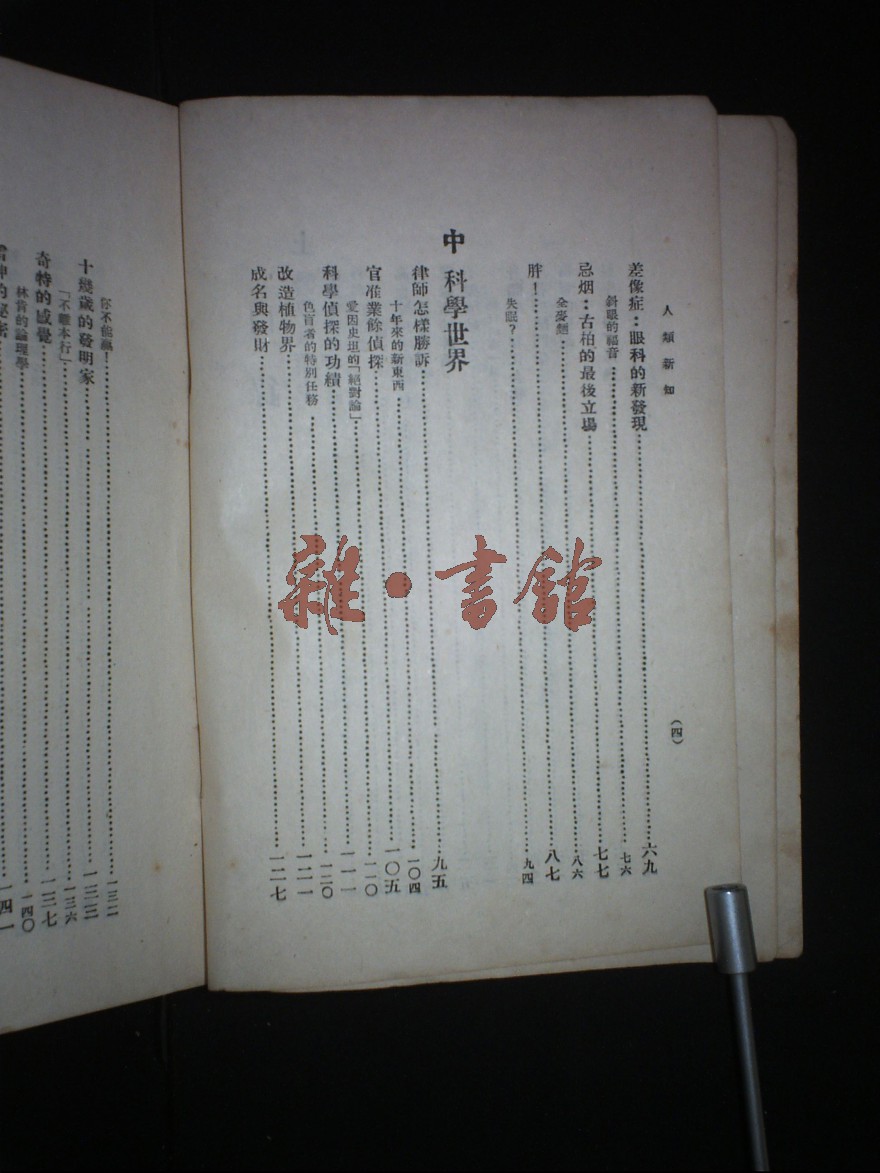 人類新知
(四)
差像症：眼科的新發現……六九
斜眼的福音……七六
忌烟：古柏的最後立場……七七
全麥麵……八六
胖！……八七
失眠？……九四
中 科學世界
律師怎樣勝訴……九五
十年來的新東西……一〇四
官准業餘偵探……一〇五
愛因史坦的「絕對論」……一一〇
科學偵探的功績……一一一
色盲者的特別任務……一二〇
改造植物界……一二一
成名與發財……一二七
你不能飙！……一三二
十幾歲的發明家……一三三
「不離本行」……一三六
奇特的感覺……一三七
林肯的論理學……一四〇
的秘密……一四一
雜·書館